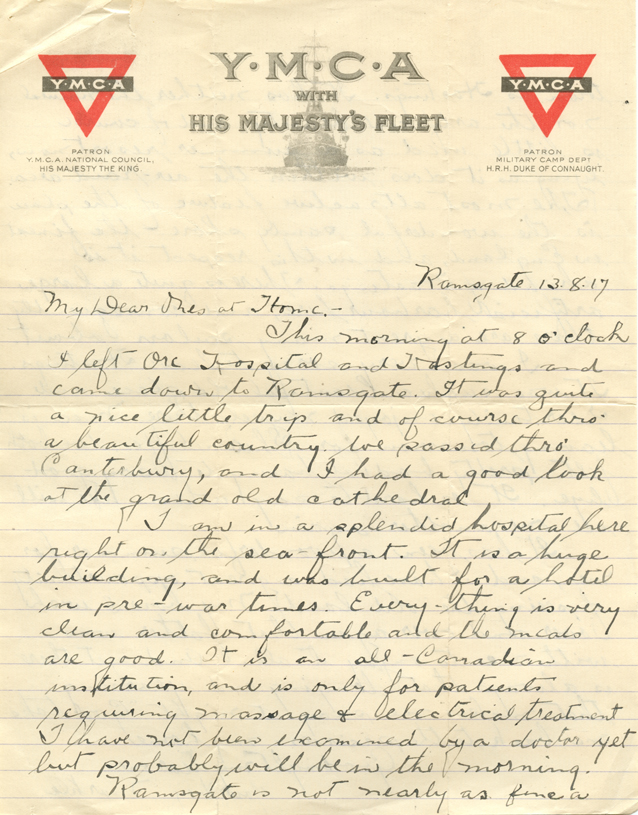 Y·M·C·A
WITH
HIS MAJESTY'S FLEET
Y·M·C·A
PATRON
Y.M.C.A. NATIONAL COUNCIL,
HIS MAJESTY THE KING
Y·M·C·A
PATRON
MILITARY CAMP DEPT
H.R.H. DUKE OF CONNAUGHT.
Ramsgate 13.8.17
My Dear Ones at Home.-
This morning at 8 o'clock
I left Ore Hospital and Hastings and
came down to Ramsgate. It was quite
a nice little trip and of course thro'
a beautiful country. We passed thro'
Canterbury, and I had a good look
at the grand old cathedral
I am in a splendid hospital here
right on the sea-front. It is a huge
building, and was built for a hotel
in pre-war times. Every-thing is very
clean and comfortable and the meals
are good. It is an all-Canadian
institution, and is only for patients
requiring massage & electrical treatment
I have not been examined by a doctor yet
but probably will be in the morning.
Ramsgate is not nearly as fine a